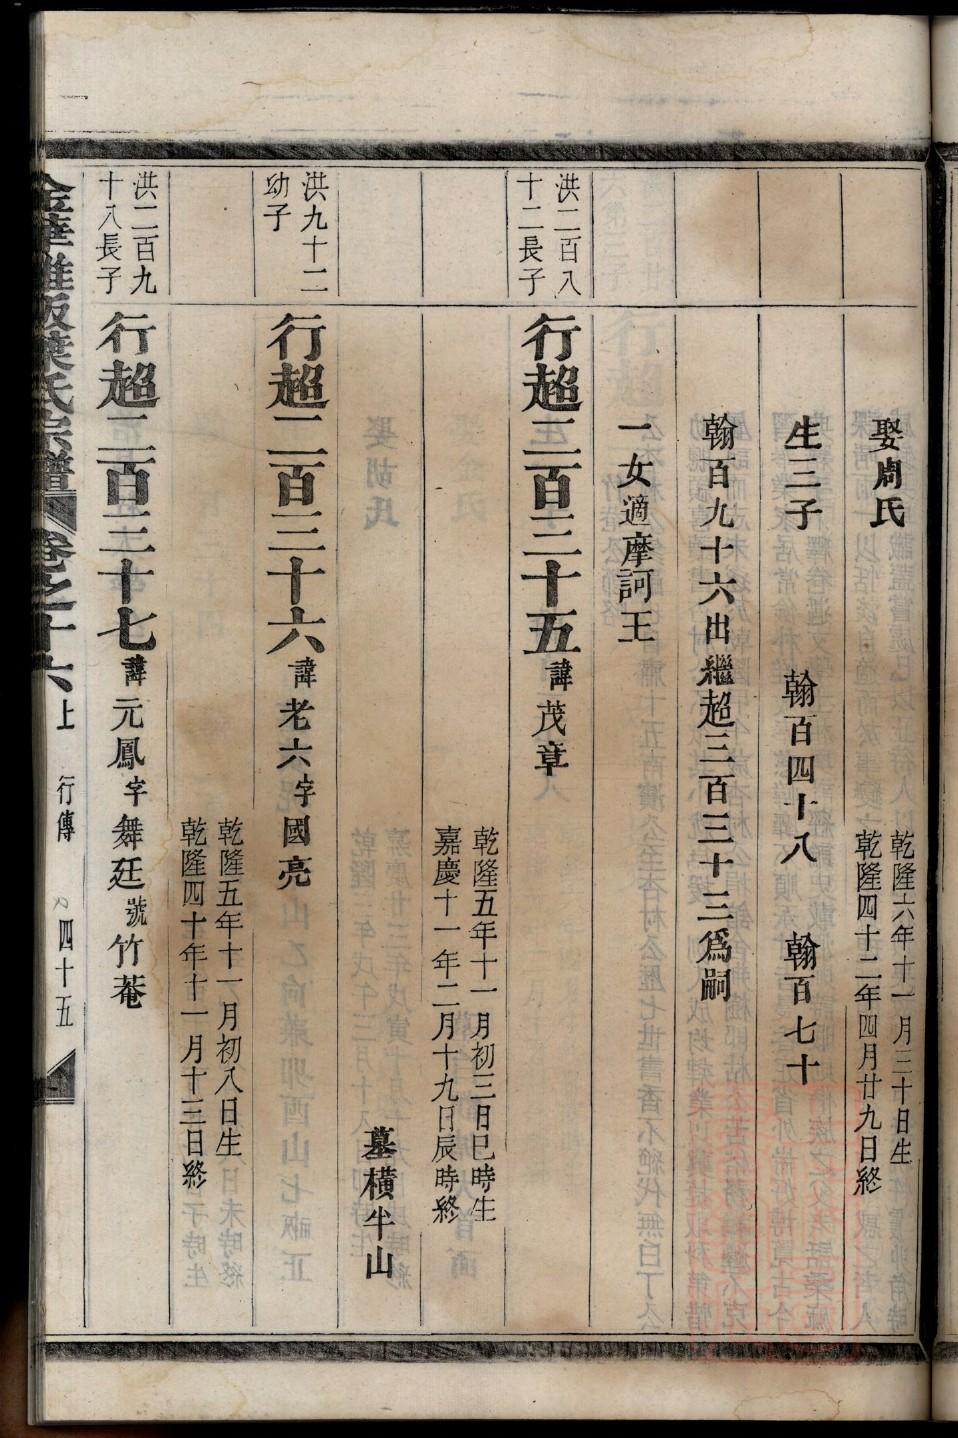 娶周氏
乾隆六年十一月三十日生
乾隆四十二年四月廿九日終
生三子 翰百四十八 翰百七十
翰百九十六出繼超三百三十三爲嗣
一女適摩訶王
洪二百八
十二長子
行超三百三十五諱茂章
乾隆五年十一月初三日巳時生
嘉慶十一年二月十九日辰時終
墓橫半山
洪九十二
幼子
行超二百三十六諱老六字國亮
乾隆五年十一月初八日生
乾隆四十年十一月十三日終
洪二百九
十八長子
行超二百三十七諱元鳳字舞廷號竹菴
葉氏宗譜 卷之十六上 行傳 四十五